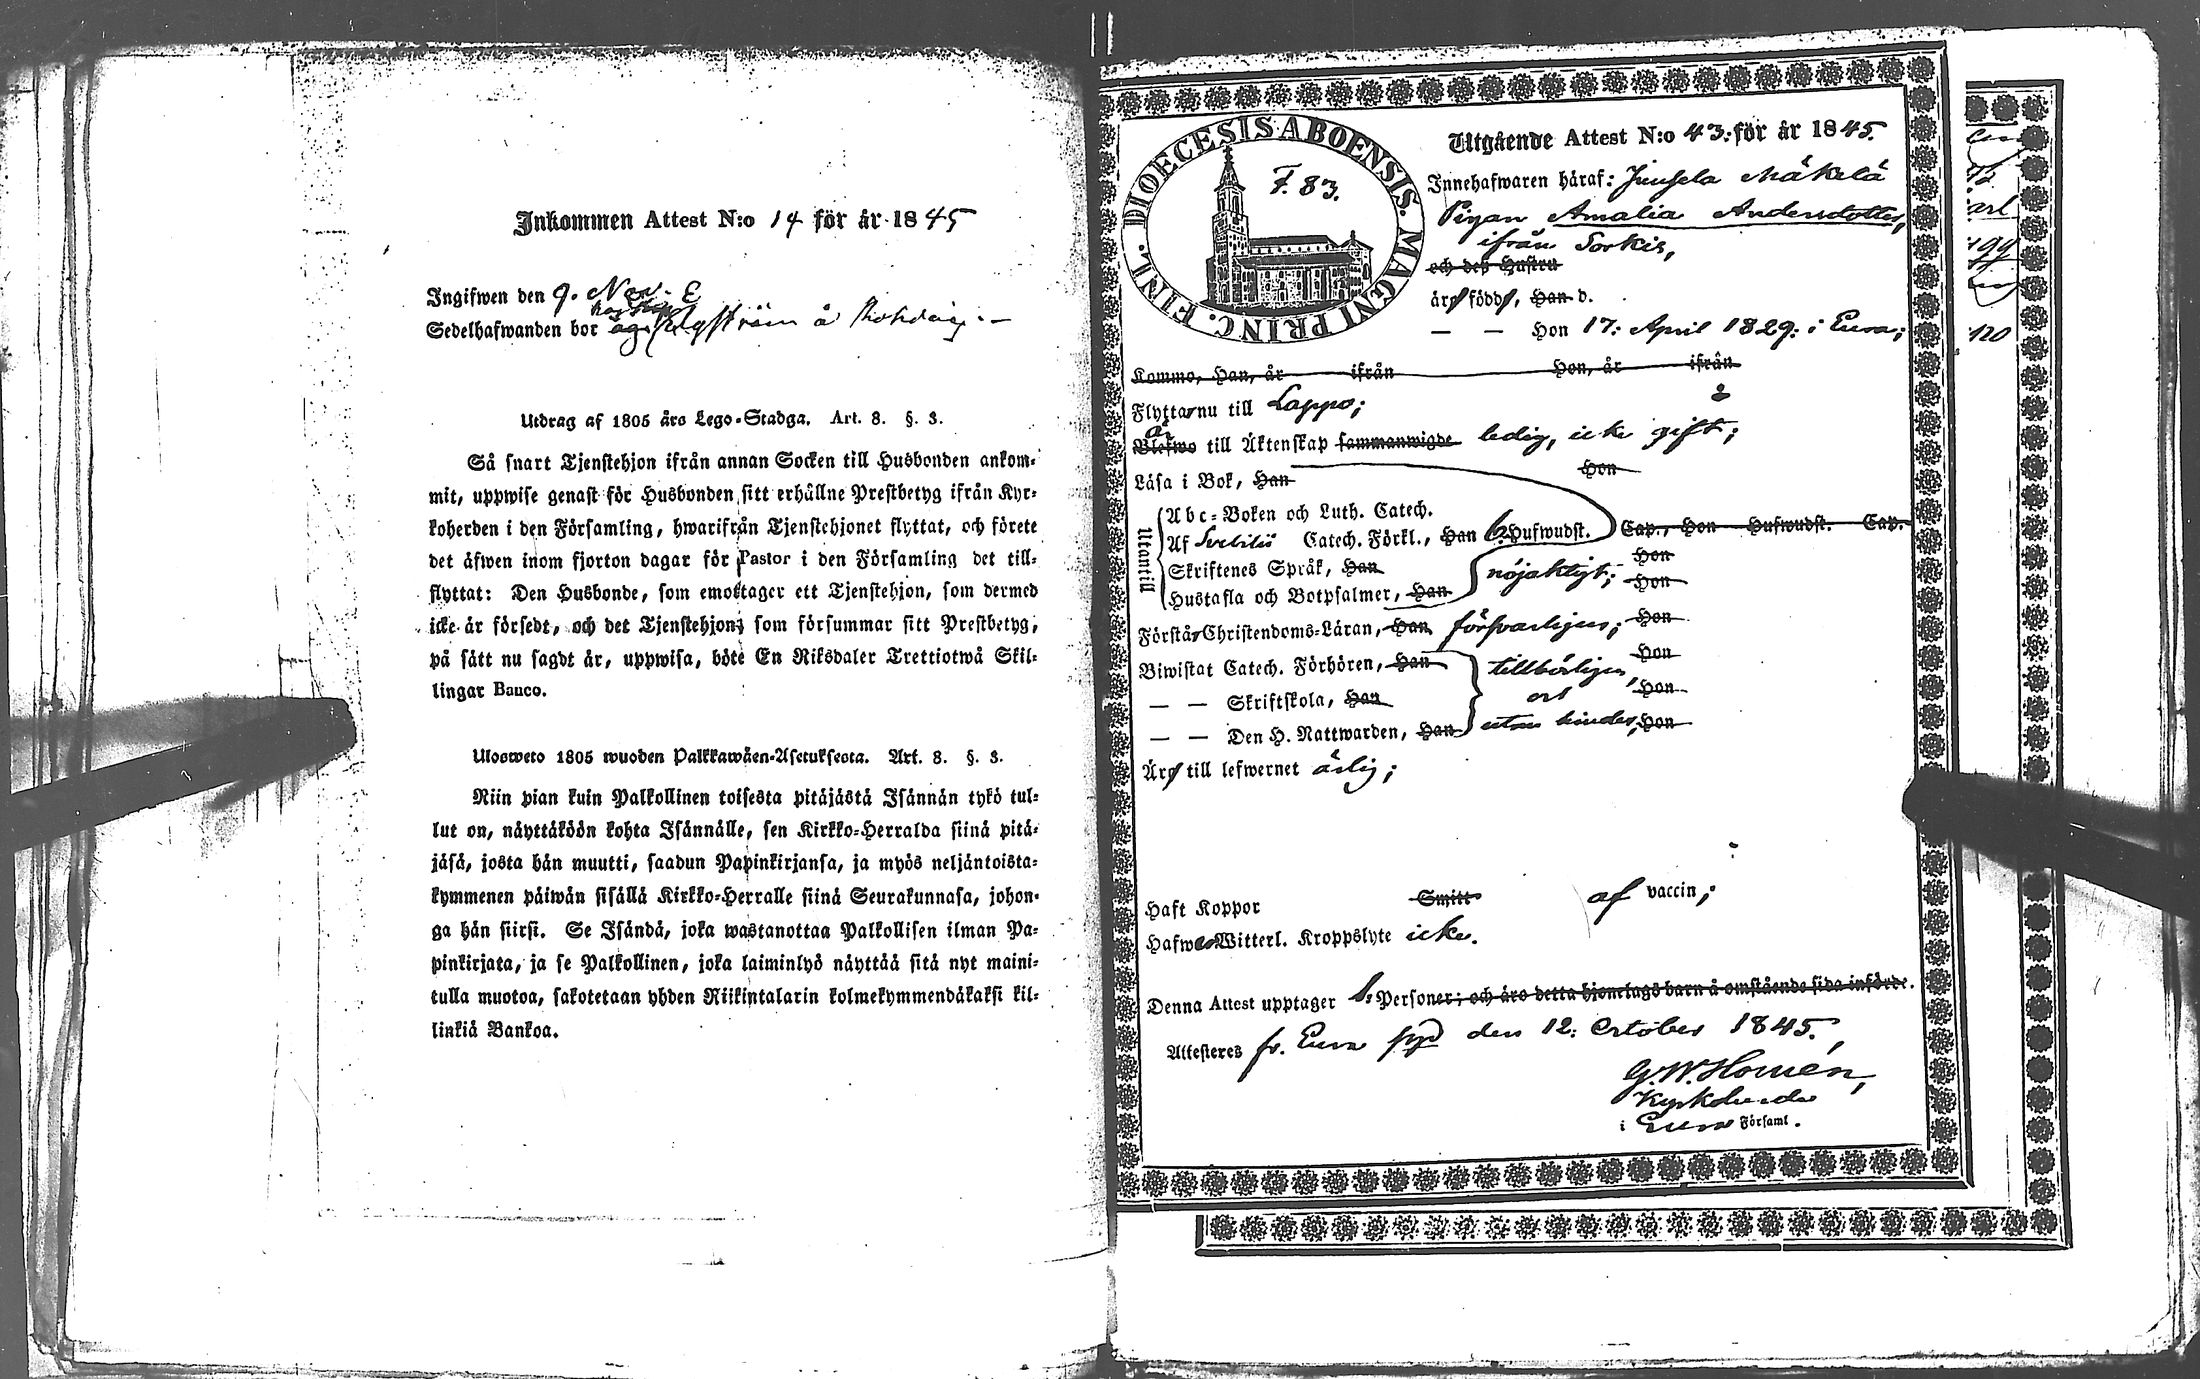 Inkommen Attest N:o 14 för år 1845
Ingifwen den 9. Nov. E
Sedelhafwanden bor å
Utdrag af 1805 års Lego-Stadga. Art. 8. §. 3.
Så snart Tjenstehjon ifrån annan Socken till Husbonden ankom-
mit, uppwise genast för Husbonden sitt erhållne Prestbetyg ifrån Kyr-
koherden i den Församling, hwarifrån Tjenstehjonet flyttat, och förete
det äfwen inom fjorton dagar för Pastor i den Församling det till-
flyttat: Den Husbonde, som emottager ett Tjenstehjon, som dermed
icke är försedt, och det Tjenstehjon, som försummar sitt Prestbetyg,
på sätt nu sagdt är, uppwisa, böte En Riksdaler Trettiotwå Skil-
lingar Banco.
Ulosweto 1805 wuoden Palkkawäen-Asetuksesta. Art. 8. §. 3.
Niin pian kuin Palkollinen toisesta pitäjästä Isännän tykö tul-
lut on, näyttäköön kohta Isännälle, sen Kirkko-Herralda siinä pitä-
jäsä, josta hän muutti, saadun Papinkirjansa, ja myös neljäntoista-
kymmenen päiwän sisällä Kirkko-Herralle siinä Seurakunnasa, johon-
ga hän siirsi. Se Isändä, joka wastanottaa Palkollisen ilman Pa-
pinkirjata, ja se Palkollinen, joka laiminlyö näyttää sitä nyt maini-
tulla muotoa, sakotetaan yhden Riikintalarin kolmekymmendäkaksi kil-
linkiä Bankoa.
DIOECESIS ABOENSIS. MAGNI PRINC. FINL.
F. 83.
Utgående Attest N:o 43: för år 1845.
Innehafwaren häraf: Juusela Mäkelä
Pigan Amalia Andersdotter,
ifrån Sorkis,
och deß Hustru
äro födde, Han d.
— — Hon 17: April 1829: i Eura;
Kommo, Han, år ifrån Hon, år ifrån
Flyttar nu till Lappo;
är
Blefwo till Äktenskap sammanwigde ledig, icke gift;
Läsa i Bok, Han Hon
Utantill
Abc-Boken och Luth. Catech.
Af Svebilii Catech. Förkl., Han 6 Hufwudst. Cap., Hon Hufwudst. Cap.
Skriftenes Språk, Han Hon
Hustafla och Botpsalmer, Han nöjaktigt; Hon
Förstår Christendoms-Läran, Han försvarligen; Hon
Biwistat Catech. Förhören, Han tillbörligen, Hon
— — Skriftskola, Han och Hon
— — Den H. Nattwarden, Han utan hinder, Hon
Äro till lefwernet ärlig;
Haft Koppor Smitt af vaccin;
Hafwer Witterl. Kroppslyte icke.
Denna Attest upptager 1: Personer; och äro detta hjonelags barn å omstående sida införde.
Attesteres fr. Eura den 12: October 1845.,
G. W. Homén,
Kyrkoherde
i Eura Församl.